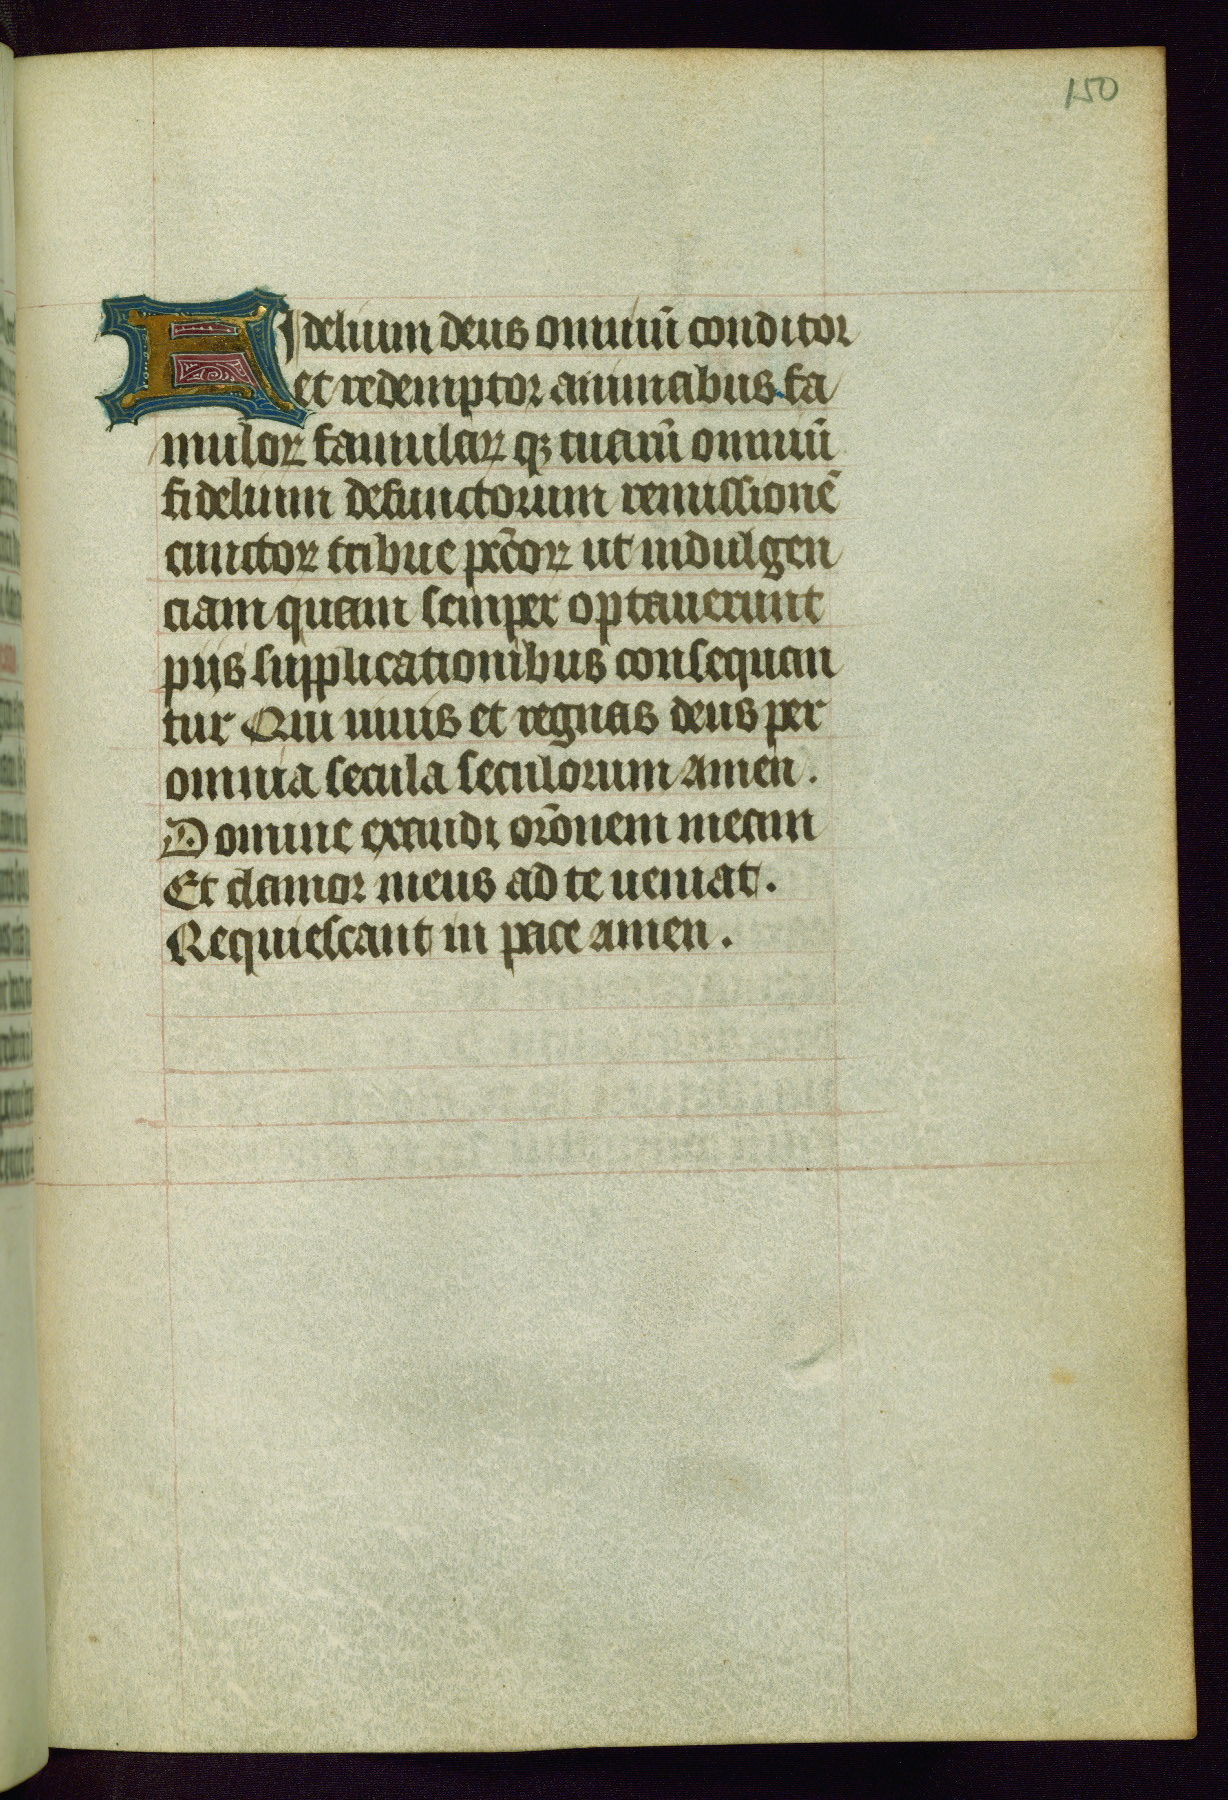 150
FIdelium deus omniū conditor
et redemptor animabus fa
muloꝝ famulaꝝ qꝫ tuarū omniū
fidelium defunctorum remissionē
cunctoꝝ tribue pc̄coꝝ ut indulgen
ciam quam semper optauerunt
pijs supplicationibus consequan
tur Qui uiuis et regnas deus per
omnia secula seculorum amen.
Domine exaudi or̄onem meam
Et clamor meus ad te ueniat.
Requiescant in pace amen.